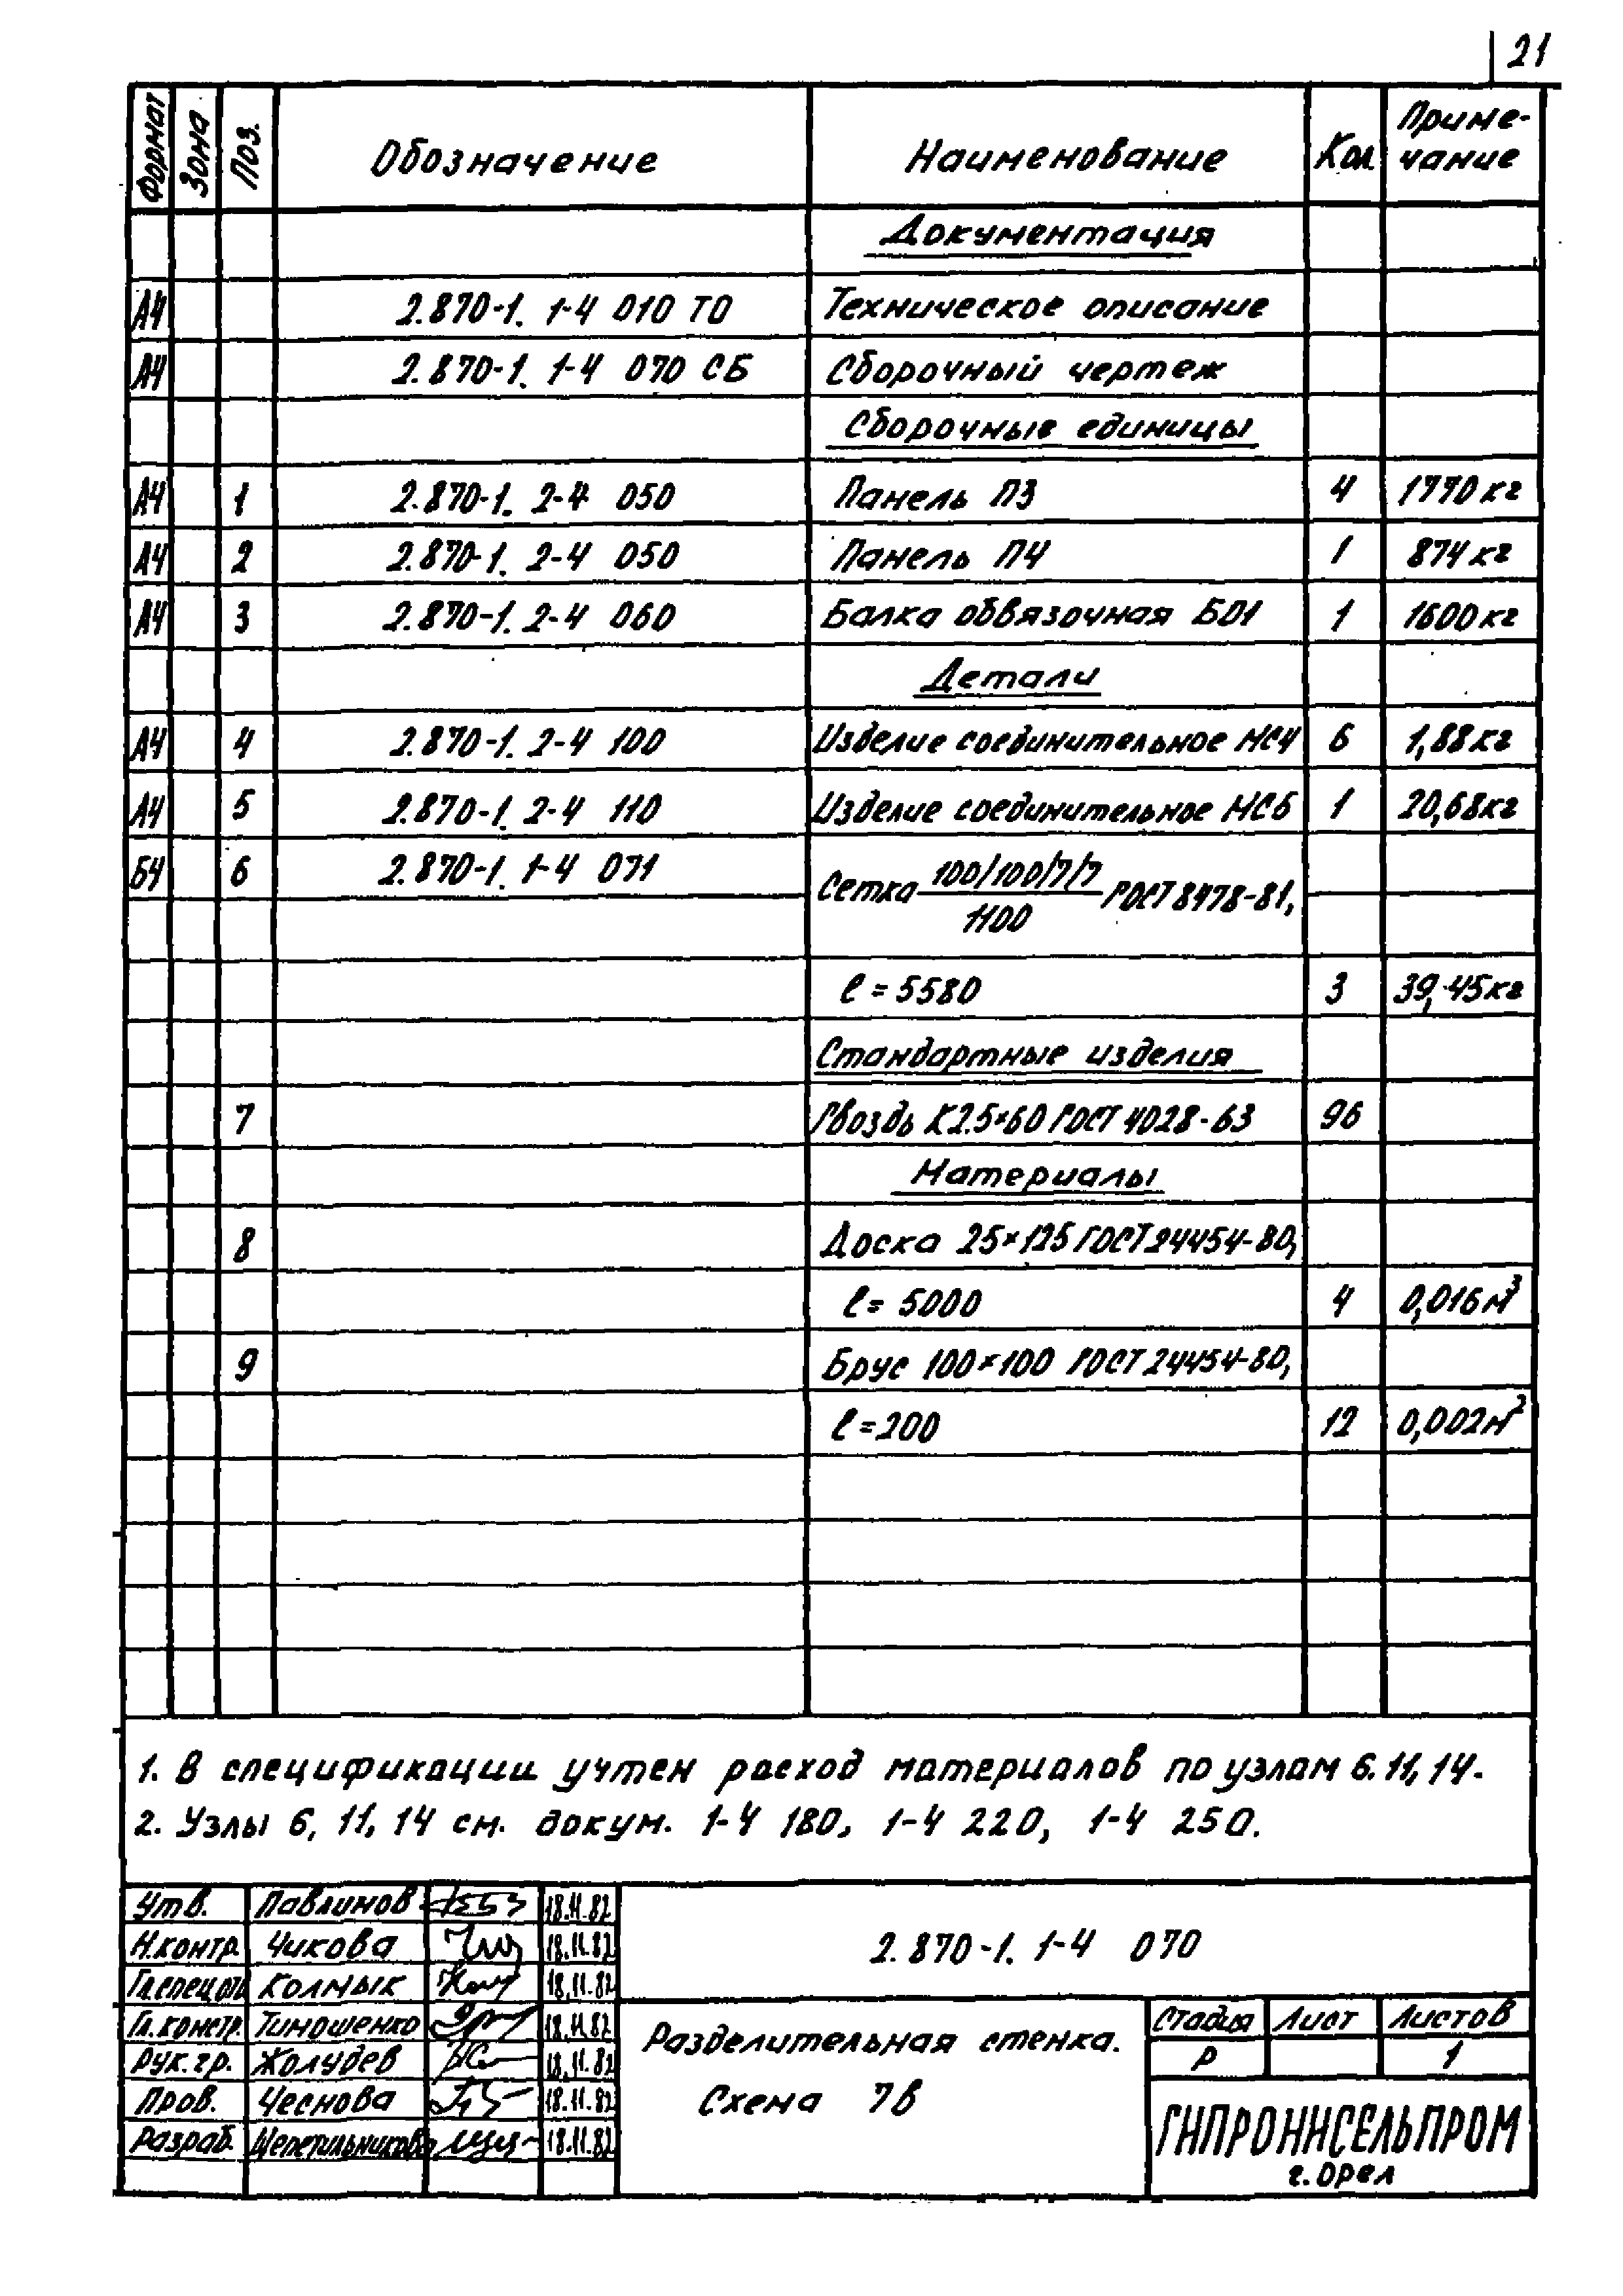 21
Формат Зона Поз. Обозначение Наименование Кол. Приме-
чание
Документация
А4 2.870-1. 1-4 010 ТО Техническое описание
А4 2.870-1. 1-4 070 СБ Сборочный чертеж
Сборочные единицы
А4 1 2.870-1. 2-4 050 Панель П3 4 1770 кг
А4 2 2.870-1. 2-4 050 Панель П4 1 874 кг
А4 3 2.870-1. 2-4 060 Балка обвязочная Б01 1 1600 кг
Детали
А4 4 2.870-1. 2-4 100 Изделие соединительное МС4 6 1,88 кг
А4 5 2.870-1. 2-4 110 Изделие соединительное МС6 1 20,68 кг
Б4 6 2.870-1. 1-4 071 Сетка 100/100/7/7
1100 ГОСТ 8478-81,
l = 5580 3 39,45 кг
Стандартные изделия
7 Гвоздь К 2.5×60 ГОСТ 4028-63 96
Материалы
8 Доска 25×125 ГОСТ 24454-80,
l = 5000 4 0,016 м³
9 Брус 100×100 ГОСТ 24454-80,
l = 200 12 0,002 м²
1. В спецификации учтен расход материалов по узлам 6. 11, 14.
2. Узлы 6, 11, 14 см. докум. 1-4 180, 1-4 220, 1-4 250.
Утв. Павлинов 18.11.82
Н.контр. Чикова 18.11.82
Гл.спец.отд Колмык 18.11.82
Гл. констр. Тимошенко 18.11.82
Рук. гр. Жолудев 18.11.82
Пров. Чеснова 18.11.82
Разраб. 18.11.82
2.870-1. 1-4 070
Разделительная стенка.
Схема 7в
Стадия Лист Листов
Р 1
ГИПРОНИСЕЛЬПРОМ
г. Орел